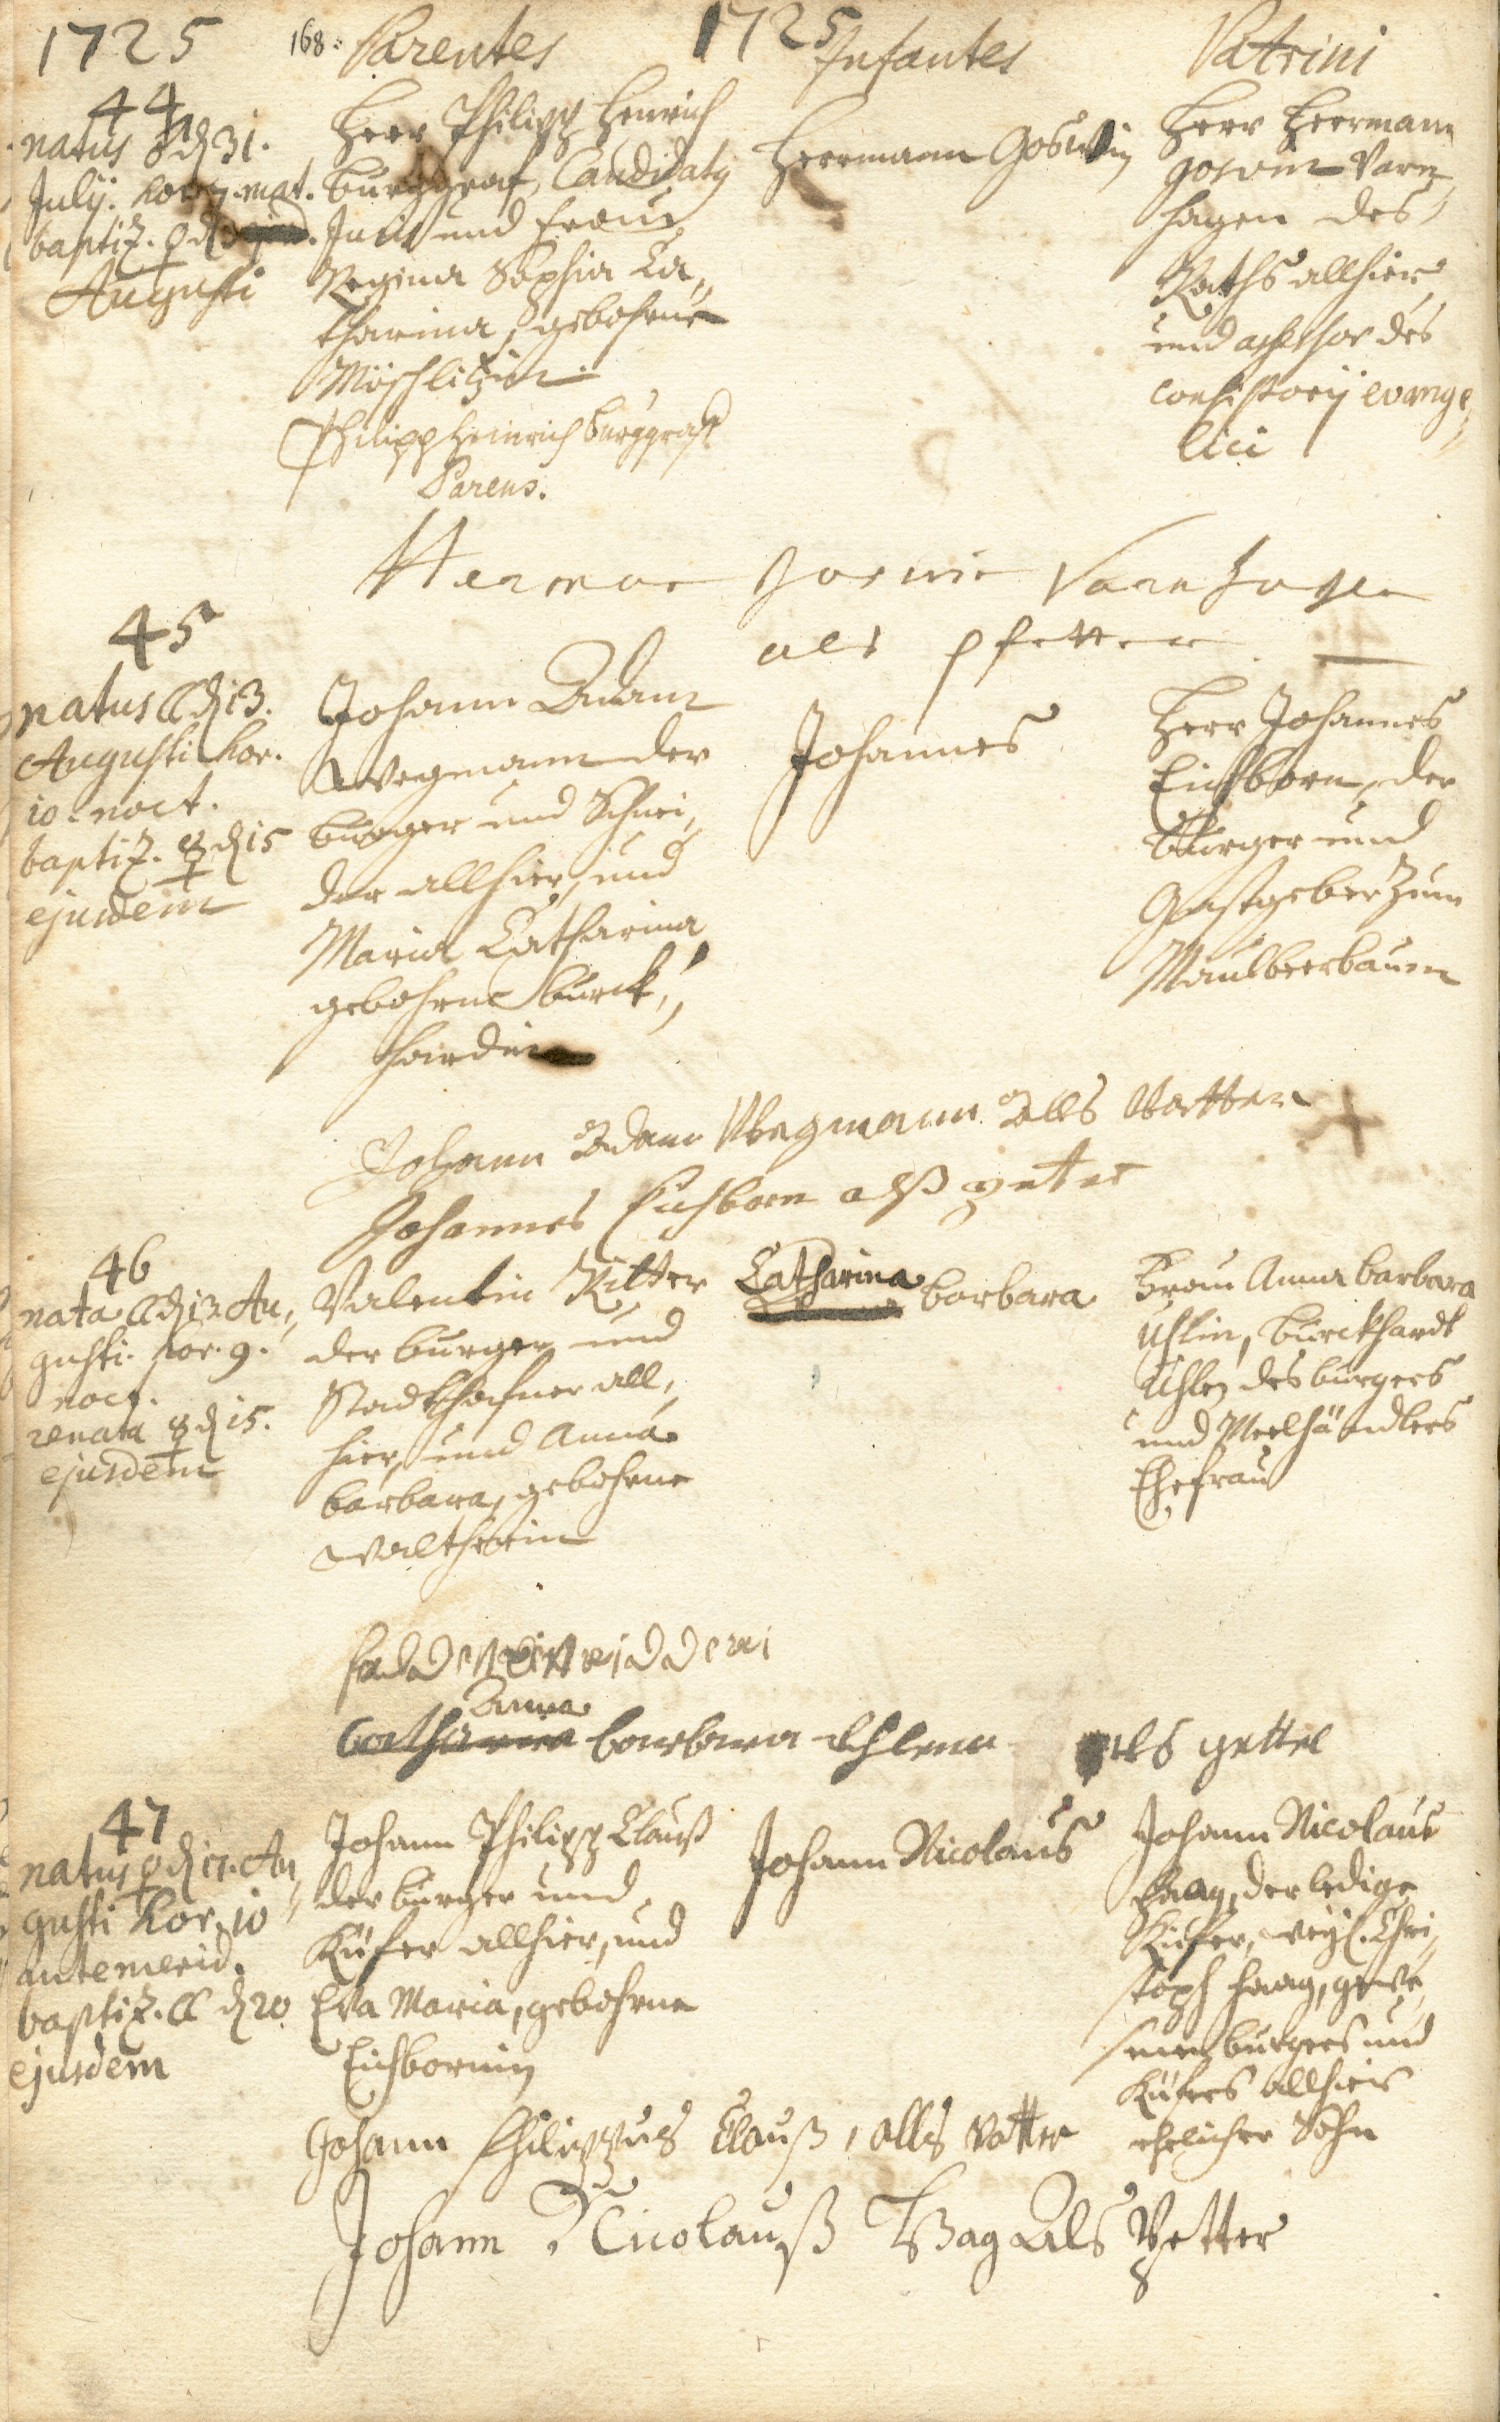 1725 168. Parentes 1725 Infantes Patrini
44.
natus ♂ d. 31.
Julij. hor. 7. mat.
baptiz. ♀ d. 3
Augusti
Herr Philipp Henrich
Burggraf, Candidatus
Juris und Frau
Regina Sophia Ca„
tharina, gebohrne
Möschlitzin.
Philipp Heinrich Burggraff
Parens.
Herrmann Goswin
Herr Herrmann
Goswin Varn„
hagen des
Raths allhier
und assessor des
consistorij evange„
lici
Herman Goswin Varnhagen
als pfetter
45
natus ☾ d. 13.
Augusti hor.
10. noct.
baptiz. ☿ d. 15
ejusdem
Johann Adam
Wegmann der
burger und Schnei„
der allhier, und
Maria Catharina
gebohrne Burck„
hardin
Johannes
Herr Johannes
Eichborn, der
Burger und
Gastgeber zum
Maulbeerbaum
Johann Adam Wegmann Alls Vatter
Johannes Eichborn alß peter
46
nata ☾ d. 13. Au„
gusti. hor. 9.
noct.
renata ☿ d. 15.
ejusdem
Valentin Ritter
der burger und
Stadthafner all„
hier, und Anna
Barbara, gebohrne
Waltherin
Catharina Barbara
Frau Anna Barbara
Uhlin, Burckhardt
Uhlen des burgers
und Meelhändlers
Ehefrau
Anna
Catharina barbara Ehlenn als gettel
47
natus ♀ d. 17. Au„
gusti hor. 10
antemerid.
baptiz. ☾ d. 20
ejusdem
Johann Philipp Clauß
der burger und
Küfer allhier, und
Eva Maria, gebohrne
Eichbornin
Johann Nicolaus
Johann Nicolaus
Haag, der ledige
Küfer, weyl. Chri„
stoph Haag, gewe„
senen burgers und
Küfers allhier
ehelicher Sohn
Johann Philippus Clauß, alls Vatter
Johann Nicolauß Hag Als Petter